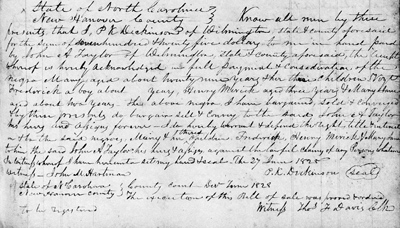 State of North Carolina
New Hanover County } Know all men by these
presents that I, P. K. Dickinson of Wilmington, State & County aforesaid
for the Sum of Seven hundred & Twenty five dollars to me in hand paid
by John A. Taylor of Wilmington, State & County aforesaid, the receipt
whereof is hereby acknowledged in full payment & Consideration of the
negro Mary, aged about twenty nine years & her three Children to wit
Frederick a boy about years, Henry Merick aged three years & Mary Ann
aged about two years. The above negroes I have bargained, sold & conveyed
& by these presents do bargain sell & Convey to the said John A Taylor
his heirs and assigns forever
in the said negroes, Mary & her three Children Frederick, Henry Merick, & Mary Ann
to him the said John A Taylor his heirs & assigns against the lawful claims of any persons whatever
In witness whereof I have hereunto set my hand & seal. The 27 June 1828
Witness John M Hartman P. K. Dickinson (seal)
State of N Carolina } County Court Dec Term 1828
New Hanover County } The execution of this Bill of sale was proved
To be registered Witness Thos. F. Davis Clk